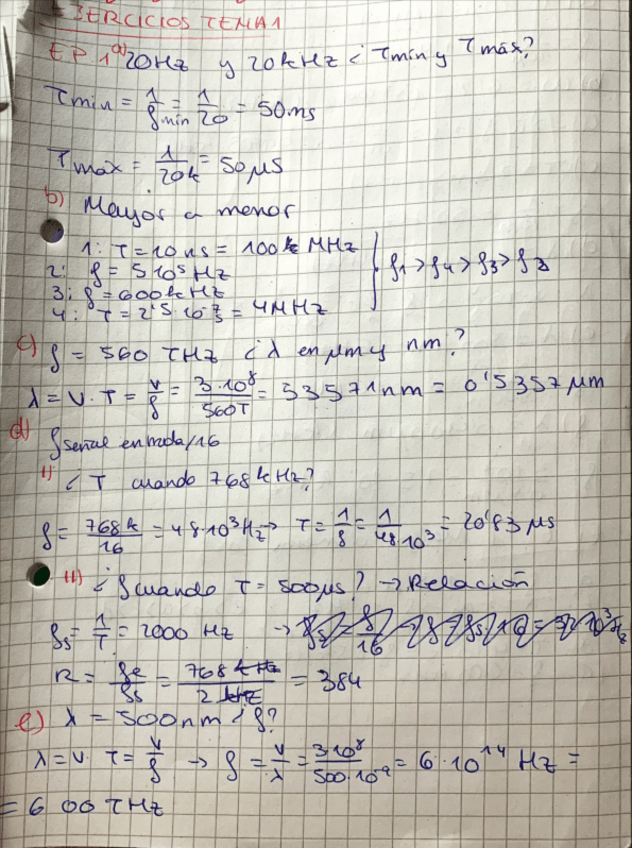 EJERCICIOS TEMA 1
EP.1 a) 20Hz y 20kHz ¿ Tmín y Tmáx?
Tmin = 1/fmin = 1/20 = 50ms
Tmax = 1/20k = 50μS
b) Mayor a menor
1: T = 10ns = 100k MHz
2: f = 5 10⁵ Hz
3: f = 600k Hz
4: T = 2'5·10⁻⁷s = 4MHz
f1 > f4 > f3 > f2
c) f = 560 THz ¿ λ en μm y nm?
λ = V·T = v/f = 3·10⁸/560T = 535'71nm = 0'5357 μm
d) f señal entrada/16
i) ¿ T cuando 768kHz?
f = 768k/16 = 48·10³Hz → T = 1/f = 1/48·10³ = 20'83 μs
ii) ¿ f cuando T = 500μs? → Relación
fs = 1/T = 2000 Hz →
R = fe/fs = 768 kHz/2 kHz = 384
e) λ = 500nm ¿ f?
λ = v T = v/f → f = v/λ = 3·10⁸/500·10⁻⁹ = 6·10¹⁴ Hz =
= 600 THz